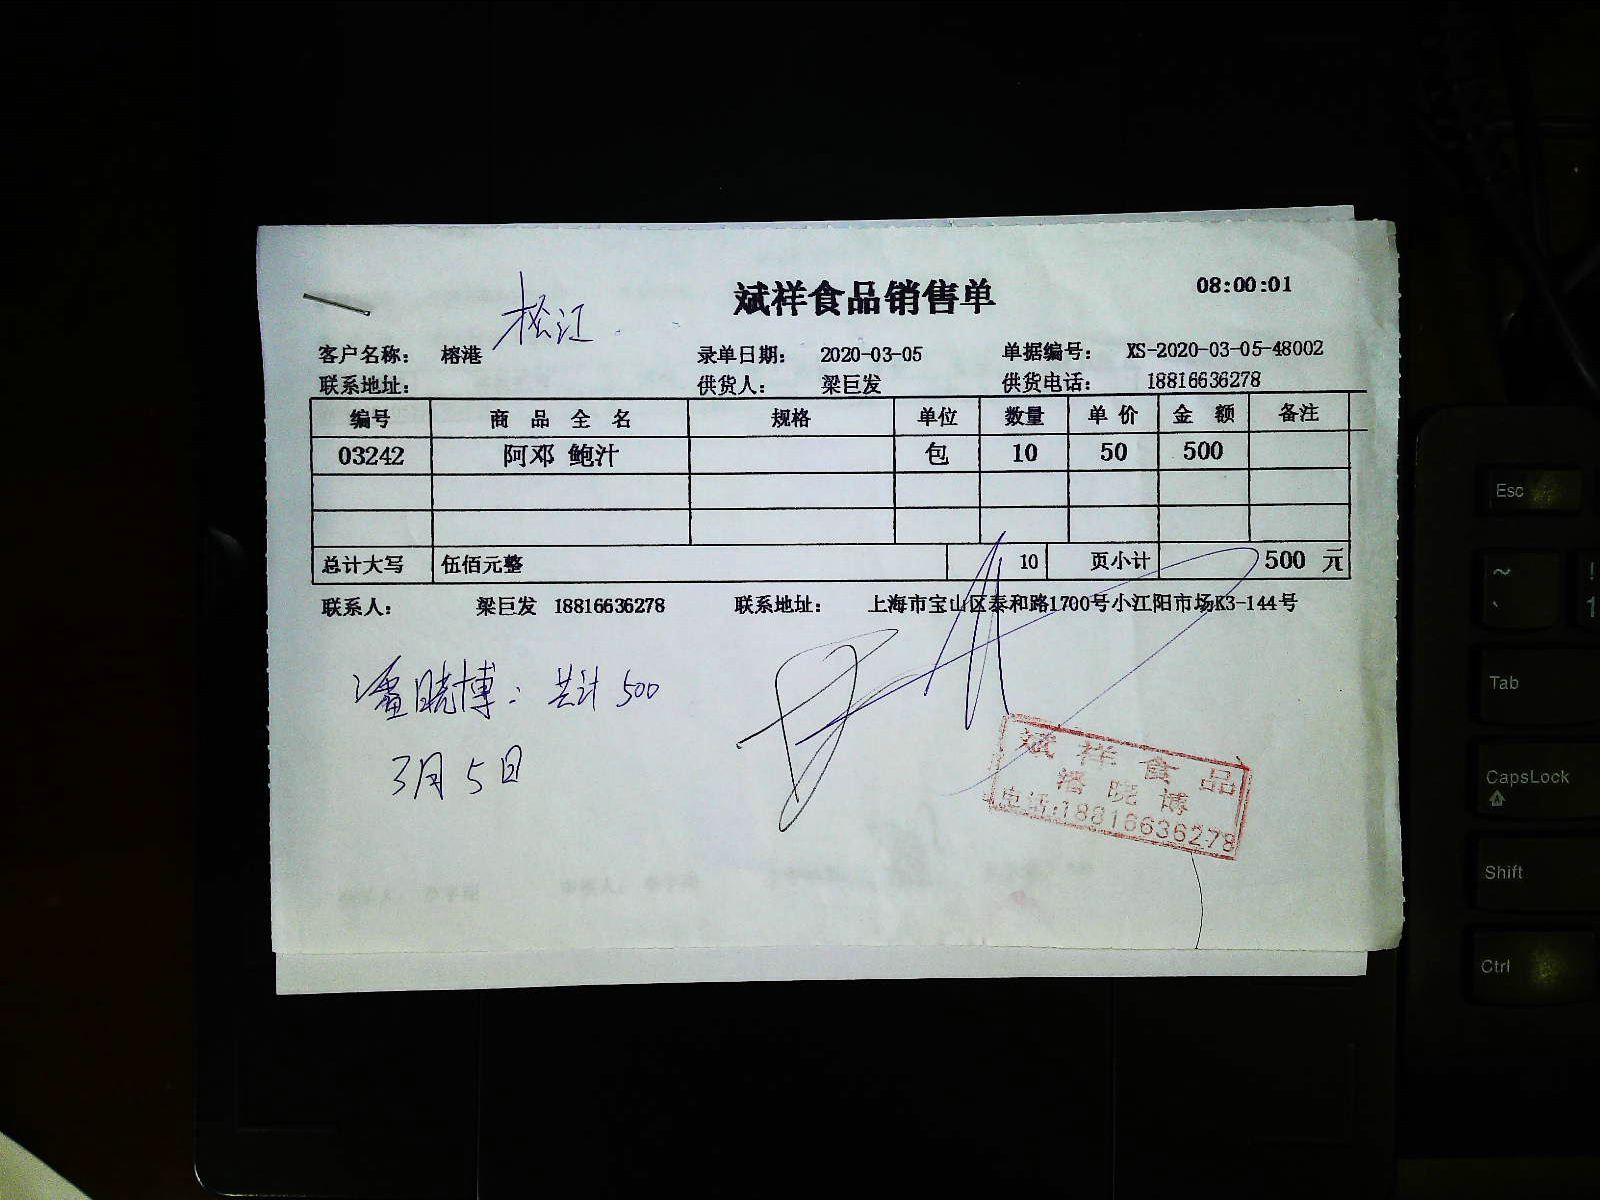 斌祥食品销售单
08:00:01
松江
客户名称： 榕港 录单日期： 2020-03-05 单据编号： XS-2020-03-05-48002
联系地址： 供货人： 梁巨发 供货电话： 18816636278
编号 商品全名 规格 单位 数量 单价 金额 备注
03242 阿邓 鲍汁 包 10 50 500
总计大写 伍佰元整 10 页小计 500 元
联系人： 梁巨发 18816636278 联系地址： 上海市宝山区泰和路1700号小江阳市场K3-144号
潘晓博：共计500
3月5日
斌祥食品
潘晓博
电话:18816636278
Esc
~
!
、
1
Tab
CapsLock
Shift
Ctrl